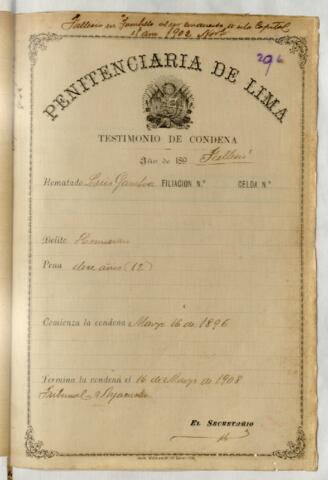 Falleció en Jambelí al ser conducido a la Capital
año 1902
296
PENITENCIARIA DE LIMA
TESTIMONIO DE CONDENA
Año de 189 Falleció
Rematado Luis Gamboa FILIACION N.º CELDA N.º
Delito Homicidio
Pena doce años (12)
Comienza la condena Mayo 16 de 1896
Termina la condena el 16 de Mayo de 1908
Tribunal Ayacucho
EL SECRETARIO